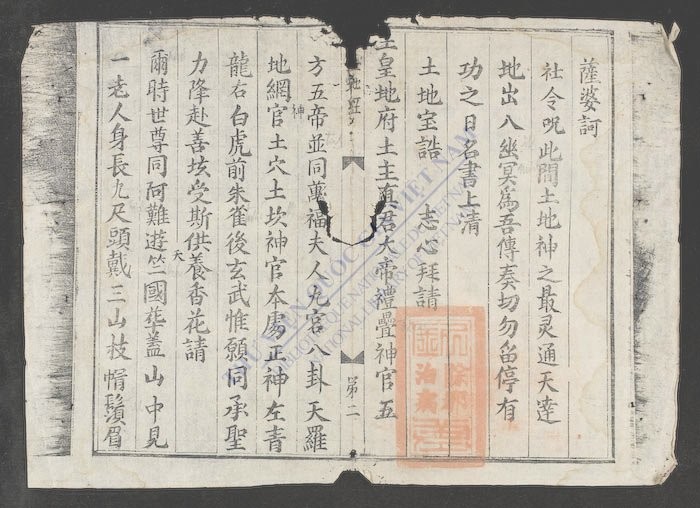 薩婆訶
社令呪此間土地神之最灵通天達
地出八幽冥為吾傳奏切勿留停有
功之日名書上清
土地宝誥 志心拜請
皇地府土主真君大帝禮疊神官五
第二
方五帝並同萬福夫人九宮八卦天羅
神
地網官土穴土坎神官本處正神左青
龍右白虎前朱雀後玄武惟願同承聖
力降赴善垓受斯供養香花請
天
爾時世尊同阿難遊竺國華蓋山中見
一老人身長九尺頭戴三山枝帽鬚眉